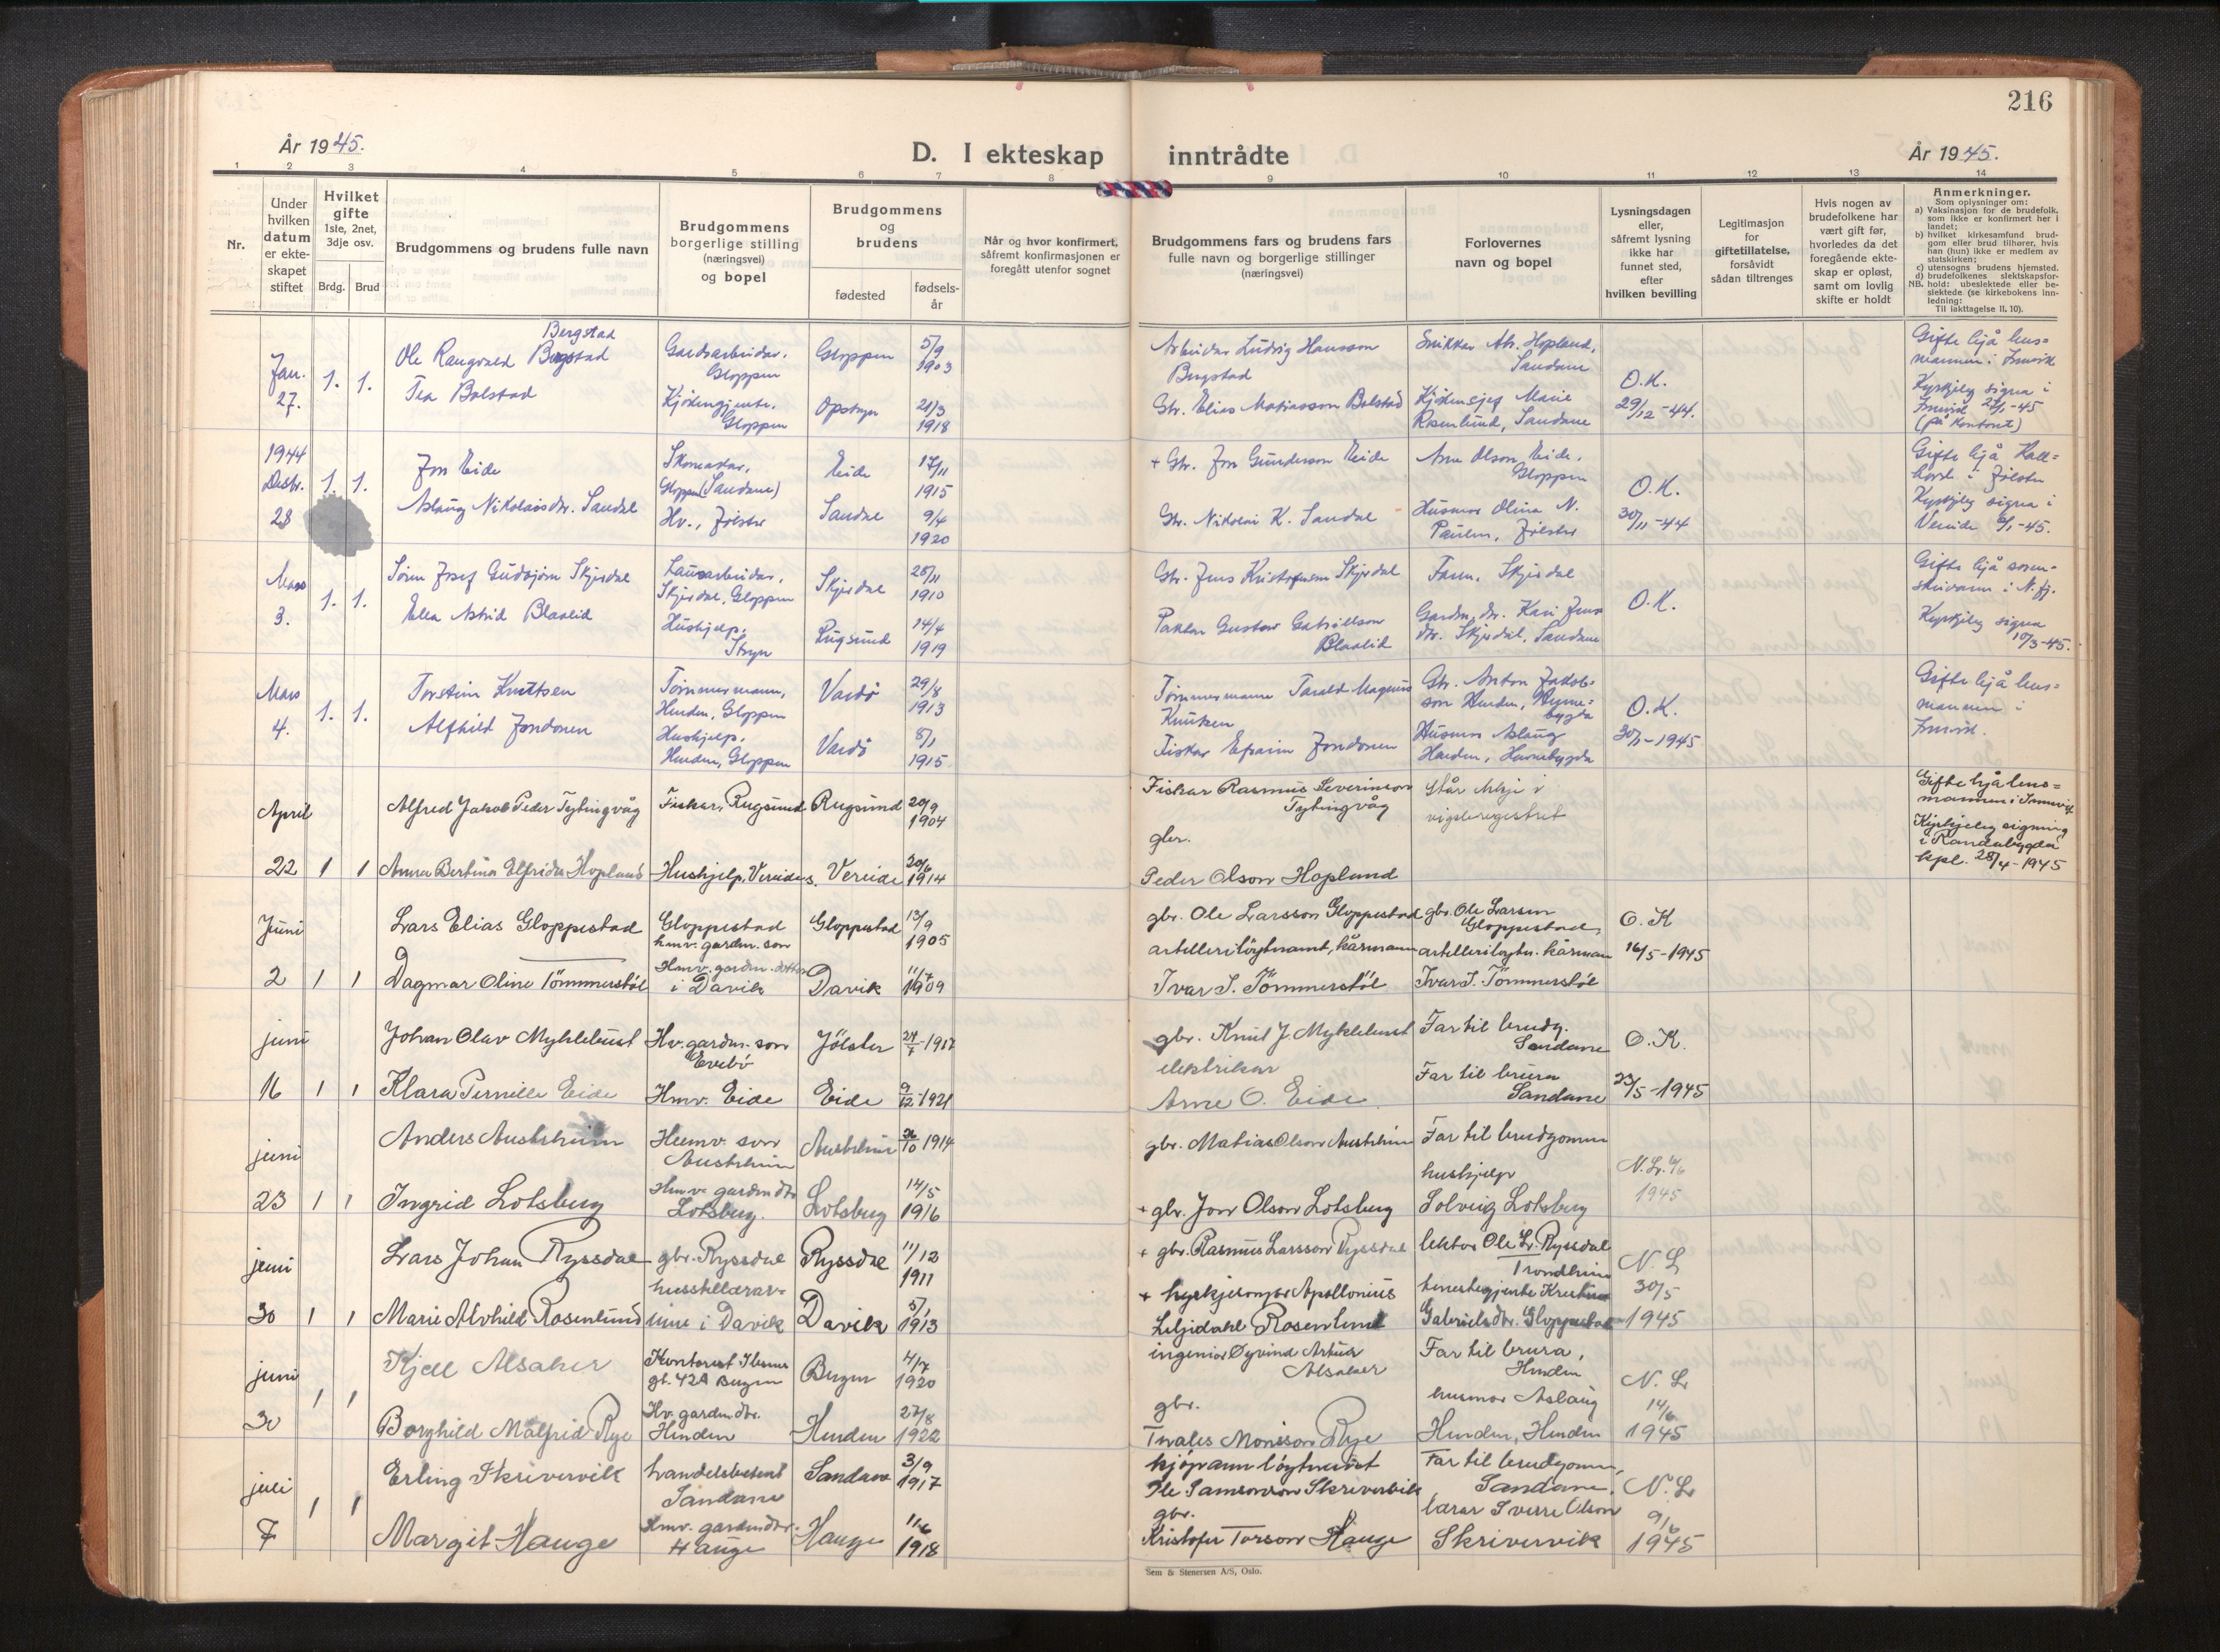 216
År 1945.
D. I ekteskap inntrådte
År 1945.
1 2 3 4 5 6 7 8 9 10 11 12 13 14
Nr.
Under hvilken datum er ekte- skapet stiftet
Hvilket gifte 1ste, 2net, 3dje osv.
Brdg. Brud
Brudgommens og brudens fulle navn
Brudgommens borgerlige stilling (næringsvei) og bopel
Brudgommens og brudens
fødested
fødsels- år
Når og hvor konfirmert, såfremt konfirmasjonen er foregått utenfor sognet
Brudgommens fars og brudens fars fulle navn og borgerlige stillinger (næringsvei)
Forlovernes navn og bopel
Lysningsdagen eller, såfremt lysning ikke har funnet sted, efter hvilken bevilling
Legitimasjon for giftetillatelse, forsåvidt sådan tiltrenges
Hvis nogen av brudefolkene har vært gift før, hvorledes da det foregående ekte- skap er opløst, samt om lovlig skifte er holdt
Anmerkninger.
Som oplysninger om:
a) Vaksinasjon for de brudefolk, som ikke er konfirmert her i landet;
b) hvilket kirkesamfund brud- gom eller brud tilhører, hvis han (hun) ikke er medlem av statskirken;
c) utensogns brudens hjemsted.
d) brudefolkenes slektskapsfor- hold: ubeslektede eller be- slektede (se kirkebokens inn- ledning:
NB.
Til iakttagelse II. 10).
Jan. 27. 1. 1.
Bergstad
Ole Rangvald Bergstad
Gardsarbeidar, Gloppen
Gloppen
5/9 1903
Arbeidar Ludvig Hansson Bergstad
Snikkar Ab. Hopland, Sandane
O.K. 29/12-44.
Gifte hjå lens= mannen i Innvik
Kyrkjeleg signa i Innvik 27/1-45 (på kontoret)
Tea Bolstad
Kjøkengjente, Gloppen
Opstryn
21/3 1918
Gbr. Elias Matiasson Bolstad
Kjøkensjef Marie Rosenlund, Sandane
1944 Desbr. 28 1. 1.
Jon Eide
Skomakar, Gloppen (Sandane)
Eide
17/11 1915
+ Gbr. Jon Gunderson Eide
Arne Olson Eide, Gloppen
O.K. 30/11-44
Gifte hjå
i Jølster
Kyrkjeleg signa i Vereide 6/1-45.
Aslaug Nikolaisdtr. Sandal
Hv., Jølster
Sandal
9/4 1920
Gbr. Nikolai K. Sandal
Husmor Olina N. Paulen, Jølster
Mars 3. 1. 1.
Søren Josef Gudbjørn Skjerdal
Lausarbeidar, Skjerdal, Gloppen
Skjerdal
28/11 1910
Gbr. Jens Kristofferson Skjerdal
Faren, Skjerdal
O.K.
Gifte hjå soren- skrivaren i N.fj.
Kyrkjeleg signa 10/3-45.
Ella Astrid Blaalid
Hushjelp, Stryn
Rugsund
14/4 1919
Paktar Gustav Gabriellson Blaalid
Gardm.dtr. Kari Jens dtr. Skjerdal, Sandane
Mars 4. 1. 1.
Torstein Knutsen
Tømmermann, Henden, Gloppen
Vardø
29/8 1913
Tømmermann Tarald Magnus Knutsen
Gbr. Anton Jakob= son Henden, Hyene= bygda
O.K. 30/1-1945
Gifte hjå lens= mannen i Innvik.
Alfhild Jondonen
Hushjelp, Henden, Gloppen
Vardø
8/1 1915
Fiskar Efraim Jondonen
Husmor Aslaug Henden, Hyenebygda
April 22 1 1
Alfred Jakob Peder Tytingvåg
Fiskar, Rugsund
Rugsund
20/9 1904
Fiskar Rasmus Severinson Tytingvåg
Står ikkje i vigsleregistret
Gifte hjå lens= mannen i Innvik
Kyrkjeleg signing i Randabygda kpl. 28/4-1945
Anna Bertina Elfrida Hopland
Hushjelp, Vereide s.
Vereide
30/6 1914
gbr. Peder Olson Hopland
Juni 2 1 1
Lars Elias Gloppestad
Gloppestad hmv. gardm. son
Gloppestad
13/9 1905
gbr. Ole Larsson Gloppestad
gbr. Ole Larsen Gloppestad,
O. K 16/5-1945
Dagmar Oline Tömmerstöl
Hmv. gardm.-dotter i Davik
Davik
11/7 1909
artilleriløytnamt, kårmann Ivar S. Tömmerstöl
artilleriløytn. kårmann Ivar S. Tömmerstöl
juni 16 1 1
Johan Olav Myklebust
Hv. gardm. son Evebö
Jölster
24/7-1917
gbr. Knut J. Myklebust
Far til brudg. Sandane
O. K. 23/5-1945
Klara Pernille Eide
Hmv. Eide
Eide
9/12-1921
elektrikar Arne O. Eide
Far til brura Sandane
juni 23 1 1
Anders Austrheim
Heimv. son Austrheim
Austrheim
26/10 1914
gbr. Matias Olson Austrheim
Far til brudgomen
N. L. 6/6 1945
Ingrid Lotsberg
Hmv. gardmdtr Lotsberg.
Lotsberg
14/5 1916
+ gbr. Jon Olson Lotsberg
hushjelp Solveig Lotsberg
juni 30 1 1
Lars Johan Ryssdal
gbr. Ryssdal
Ryssdal
11/12 1911
+ gbr. Rasmus Larsson Ryssdal
lektor Ole Lr. Ryssdal Trondheim
N. L 30/5 1945
Marie Alvhild Rosenlund
husstellærar- inne i Davik
Davik
5/1 1913
+ kyrkjesongar Apollonius Liljedahl Rosenlund
tenestegjente Kristina Gabrielsdtr. Gloppestad
juni 30 1 1
Kjell Alsaker
Kontorist Ibsens gt. 42A Bergen
Bergen
4/7 1920
ingeniør Øyvind Artur Alsaker
Far til brura, Henden
N. L 14/6 1945
Borghild Målfrid Rye
Hv. gardmdtr. Henden
Henden
27/8 1922
gbr. Monsson Rye
husmor Aslaug Henden, Henden
juli 7 1 1
Erling Skrivervik
handelsbetent Sandane
Sandane
3/9 1917
kjøpmann løytnant Ole Samsonson Skrivervik
Far til brudgomen, Sandane,
N. L 9/6 1945
Margit Hauge
Hmv. gardmdtr. Hauge
Hauge
11/6 1918
gbr. Kristofer Torson Hauge
lærar Sverre Olson Skrivervik
Sem & Stenersen A/S, Oslo.